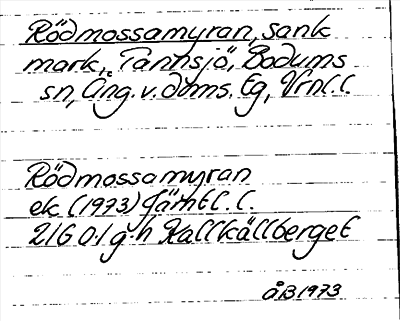 Rödmossamyran, sank
mark, Tannsjö, Bodums
sn, Ång. v. doms. Eg, Vrnl.l.
Rödmossamyran
ek. (1973) Jämtl. l.
21G 0-1 g-h Kallkällberget
ÅB 1973